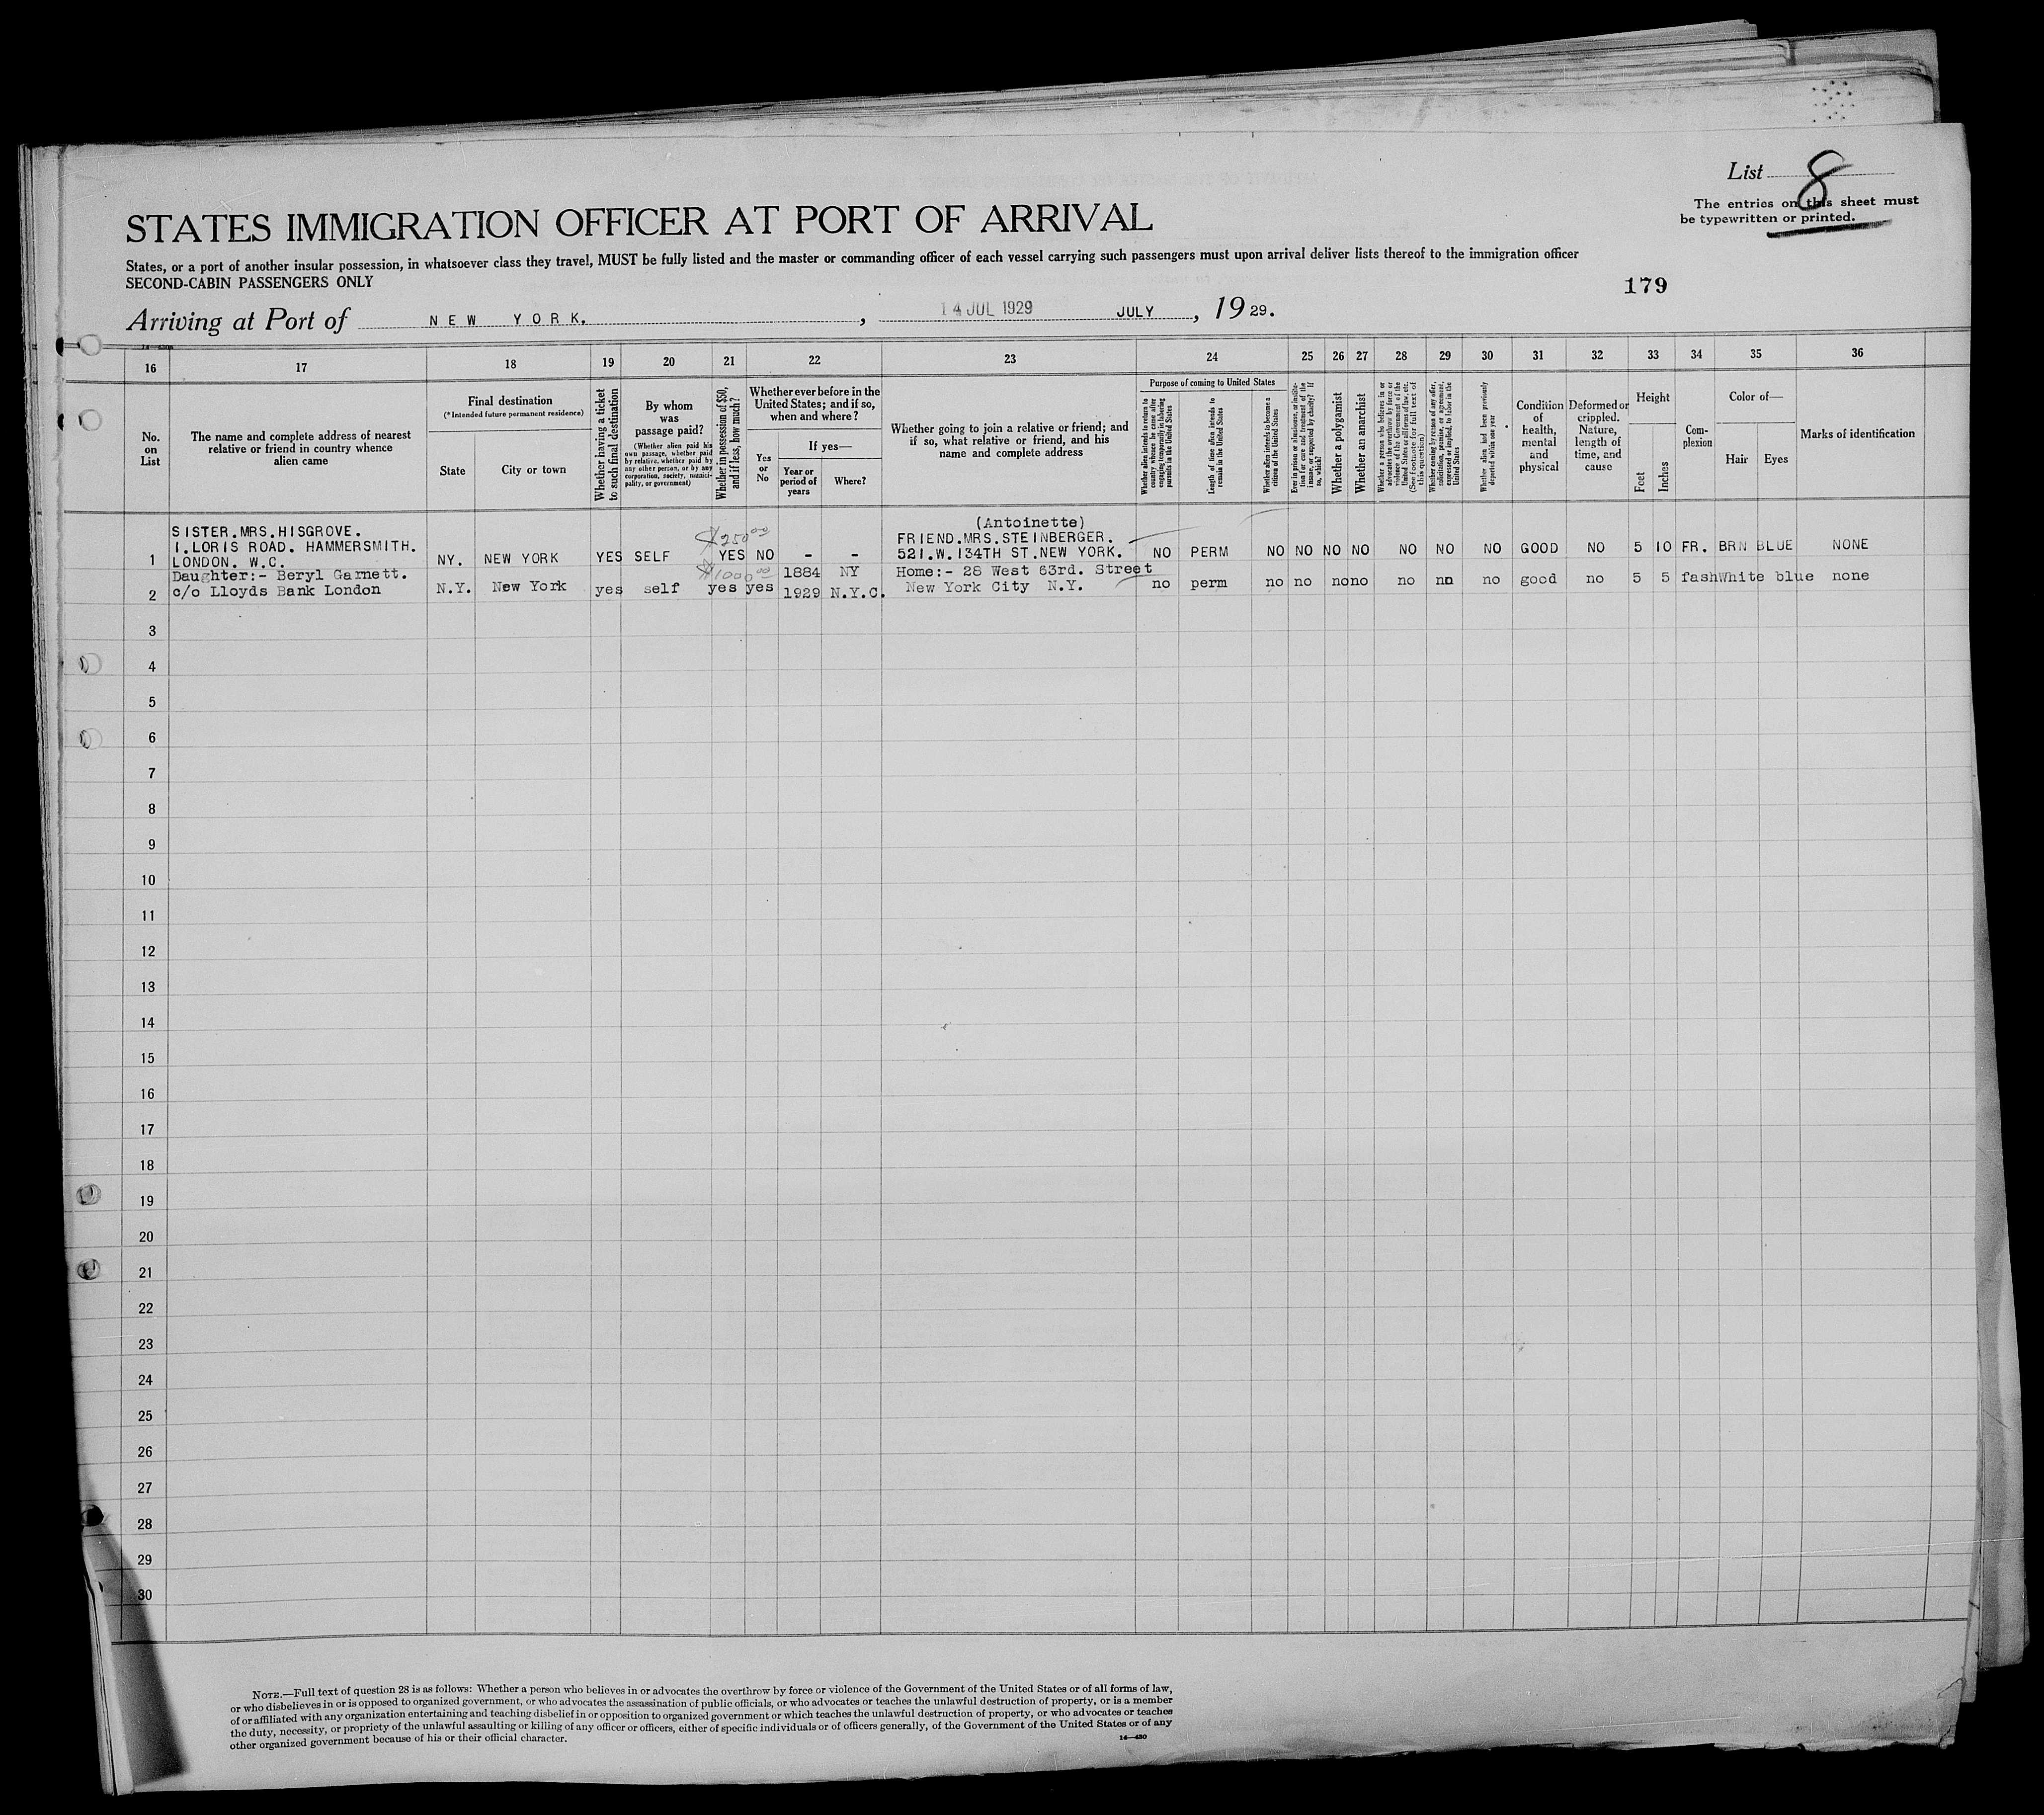 List 8
The entries on this sheet must
be typewritten or printed.
STATES IMMIGRATION OFFICER AT PORT OF ARRIVAL
States, or a port of another insular possession, in whatsoever class they travel, MUST be fully listed and the master or commanding officer of each vessel carrying such passengers must upon arrival deliver lists thereof to the immigration officer
SECOND-CABIN PASSENGERS ONLY
179
Arriving at Port of NEW YORK. , 14 JUL 1929 JULY , 19 29.
16 17 18 19 20 21 22 23 24 25 26 27 28 29 30 31 32 33 34 35 36
No. on List
The name and complete address of nearest relative or friend in country whence alien came
Final destination
(* Intended future permanent residence)
State
City or town
Whether having a ticket to such final destination
By whom was passage paid?
(Whether alien paid his own passage, whether paid by relative, whether paid by any other person, or by any corporation, society, municipality, or government)
Whether in possession of $50, and if less, how much?
Whether ever before in the United States; and if so, when and where?
Yes or No
If yes—
Year or period of years
Where?
Whether going to join a relative or friend; and if so, what relative or friend, and his name and complete address
Purpose of coming to United States
Whether alien intends to return to country whence he came after engaging temporarily in laboring pursuits in the United States
Length of time alien intends to remain in the United States
Whether alien intends to become a citizen of the United States
Ever in prison or almshouse, or institution for care and treatment of the insane, or supported by charity? If so, which?
Whether a polygamist
Whether an anarchist
Whether a person who believes in or advocates the overthrow by force or violence of the Government of the United States or all forms of law, etc. (See footnote for full text of this question)
Whether coming by reason of any offer, solicitation, promise, or agreement, expressed or implied, to labor in the United States
Whether alien had been previously deported within one year
Condition of health, mental and physical
Deformed or crippled. Nature, length of time, and cause
Height
Feet
Inches
Complexion
Color of—
Hair
Eyes
Marks of identification
1 SISTER.MRS.HISGROVE.
1.LORIS ROAD. HAMMERSMITH.
LONDON. W.C.
NY. NEW YORK YES SELF $250 00 YES NO - -
(Antoinette)
FRIEND.MRS.STEINBERGER.
521.W.134TH ST.NEW YORK.
NO PERM NO NO NO NO NO NO NO GOOD NO 5 10 FR. BRN BLUE NONE
2 Daughter:- Beryl Garnett.
c/o Lloyds Bank London
N.Y. New York yes self $1000 00 yes yes 1884 NY
1929 N.Y.C.
Home:- 28 West 63rd. Street
New York City N.Y.
no perm no no no no no no no good no 5 5 fash White blue none
3
4
5
6
7
8
9
10
11
12
13
14
15
16
17
18
19
20
21
22
23
24
25
26
27
28
29
30
NOTE.—Full text of question 28 is as follows: Whether a person who believes in or advocates the overthrow by force or violence of the Government of the United States or of all forms of law,
or who disbelieves in or is opposed to organized government, or who advocates the assassination of public officials, or who advocates or teaches the unlawful destruction of property, or is a member
of or affiliated with any organization entertaining and teaching disbelief in or opposition to organized government or which teaches the unlawful destruction of property, or who advocates or teaches
the duty, necessity, or propriety of the unlawful assaulting or killing of any officer or officers, either of specific individuals or of officers generally, of the Government of the United States or of any
other organized government because of his or their official character.
14—430